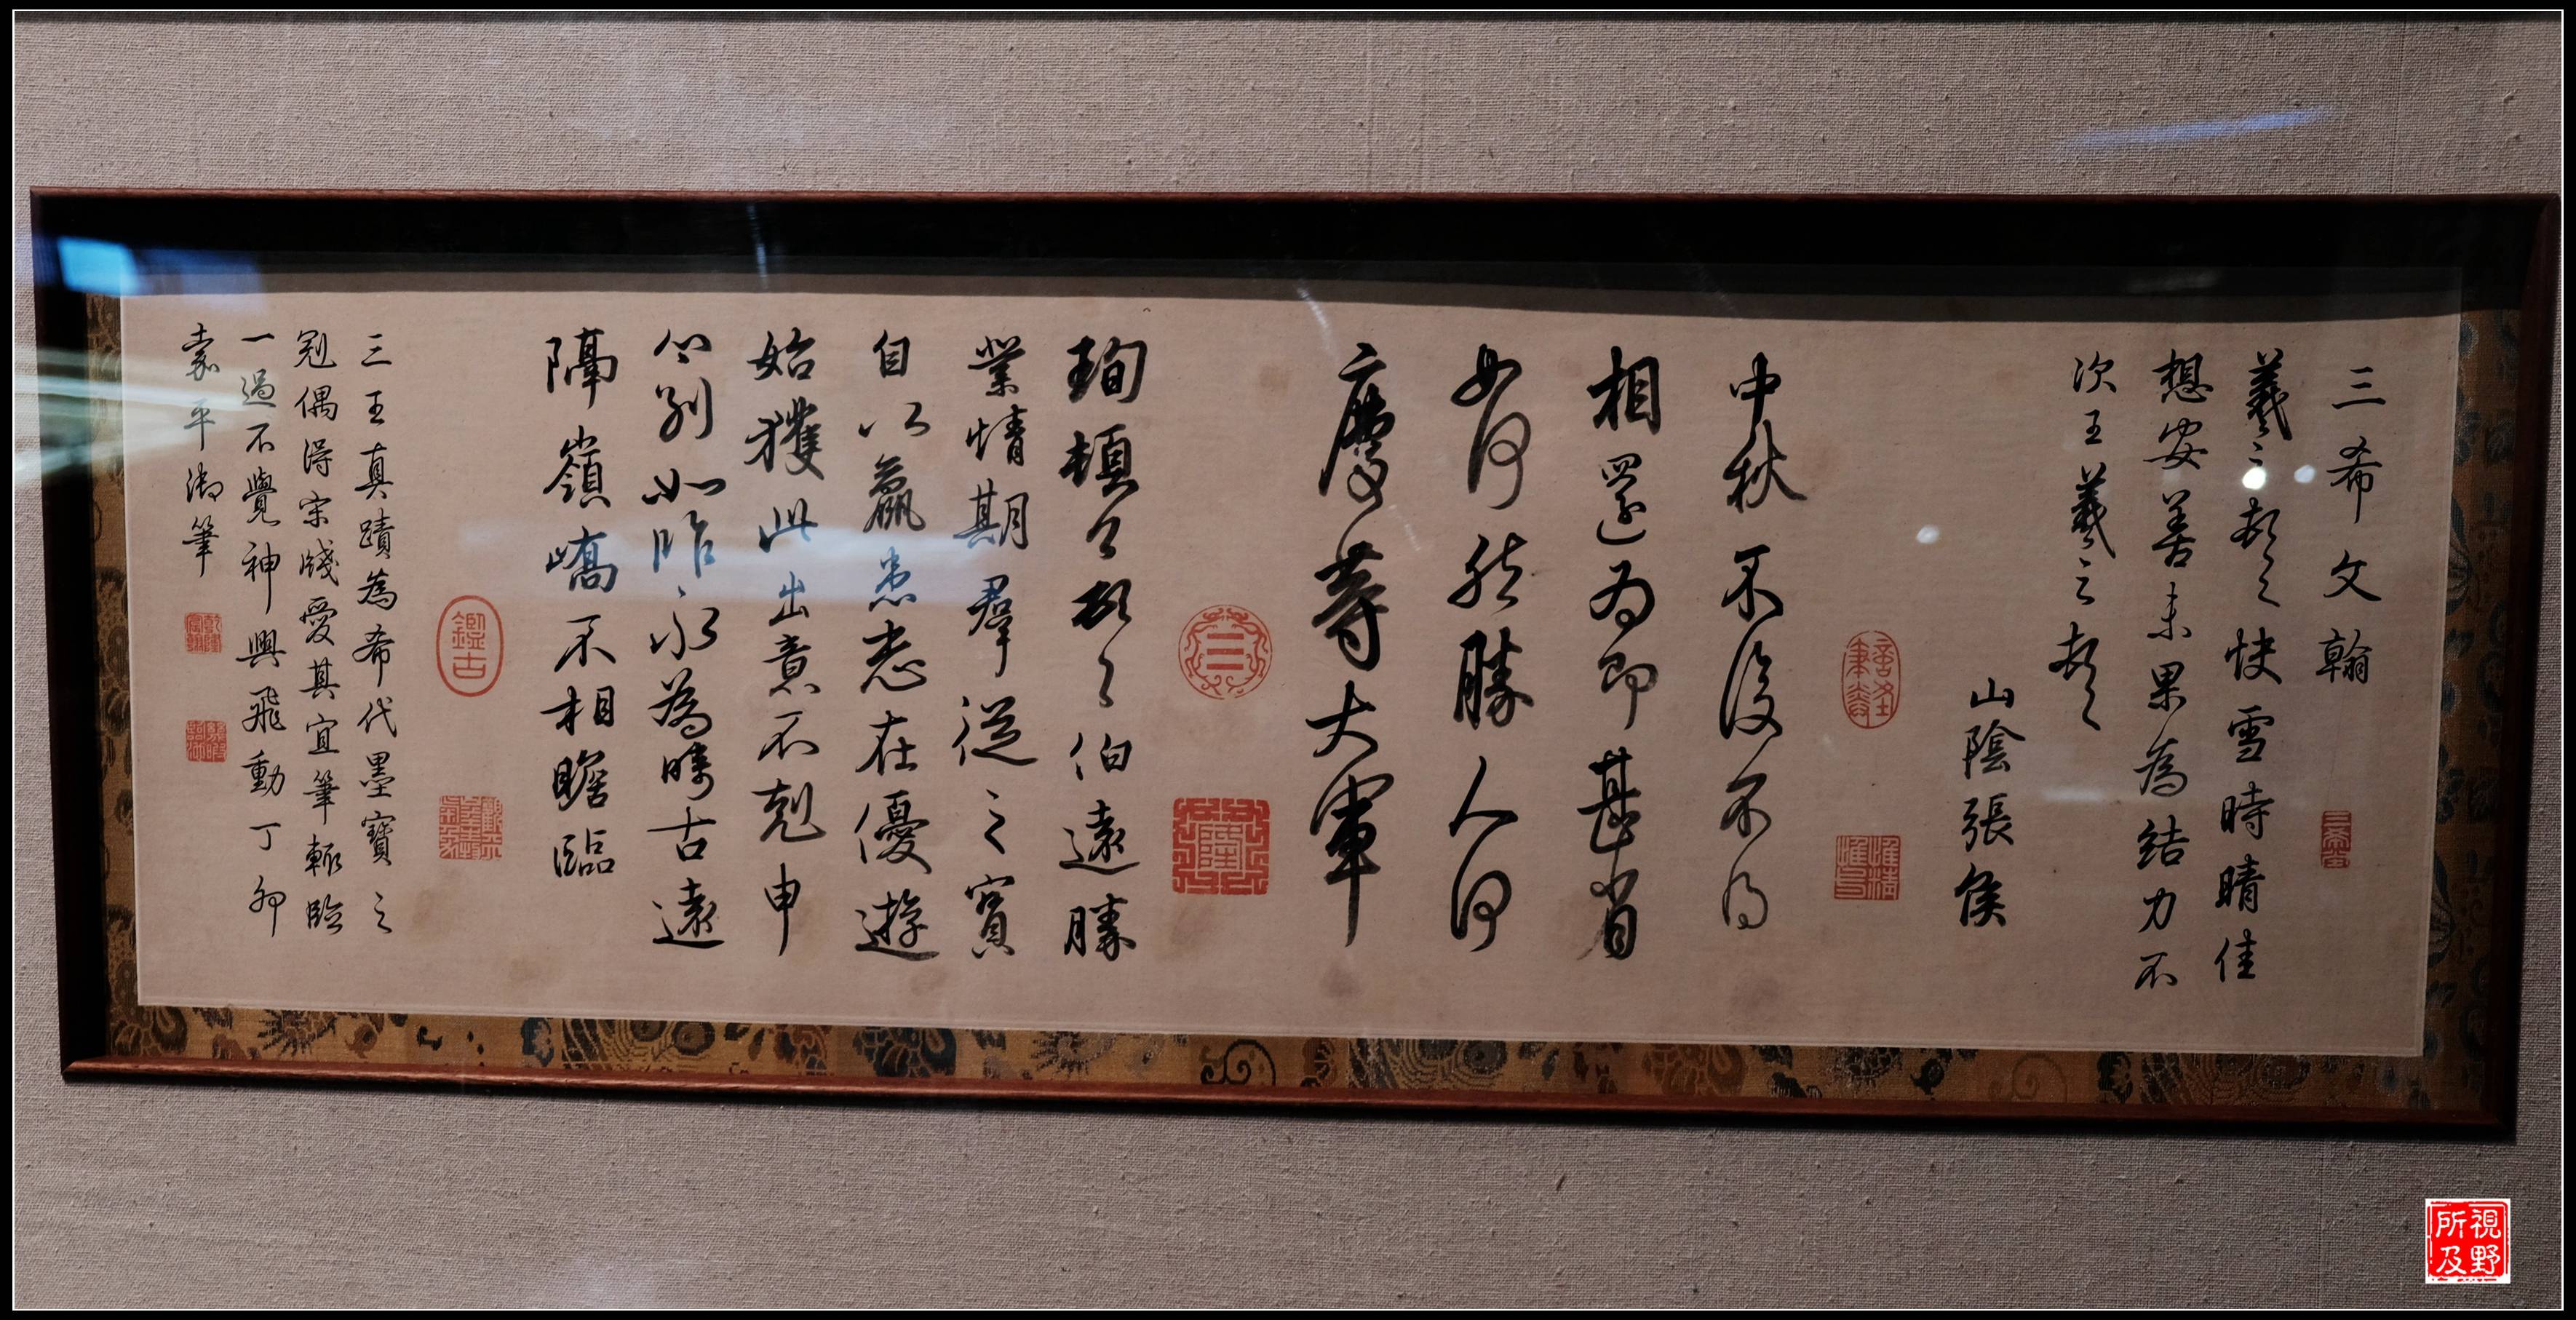 三希文翰
羲之頓首快雪時晴佳
想安善未果為結力不
次王羲之頓首
山陰張侯
中秋不復不得
相還為即甚省
如何然勝人何
慶等大軍
珣頓首頓首伯遠勝
業情期群從之寶
自以羸患志在優遊
始獲此出意不剋申
分別如昨永為疇古遠
隔嶺嶠不相瞻臨
三王真蹟為希代墨寶之
冠偶得宋牋愛其宜筆輒臨
一過不覺神興飛動丁卯
嘉平御筆
三希堂
乾
隆
鑑古
視野
所及